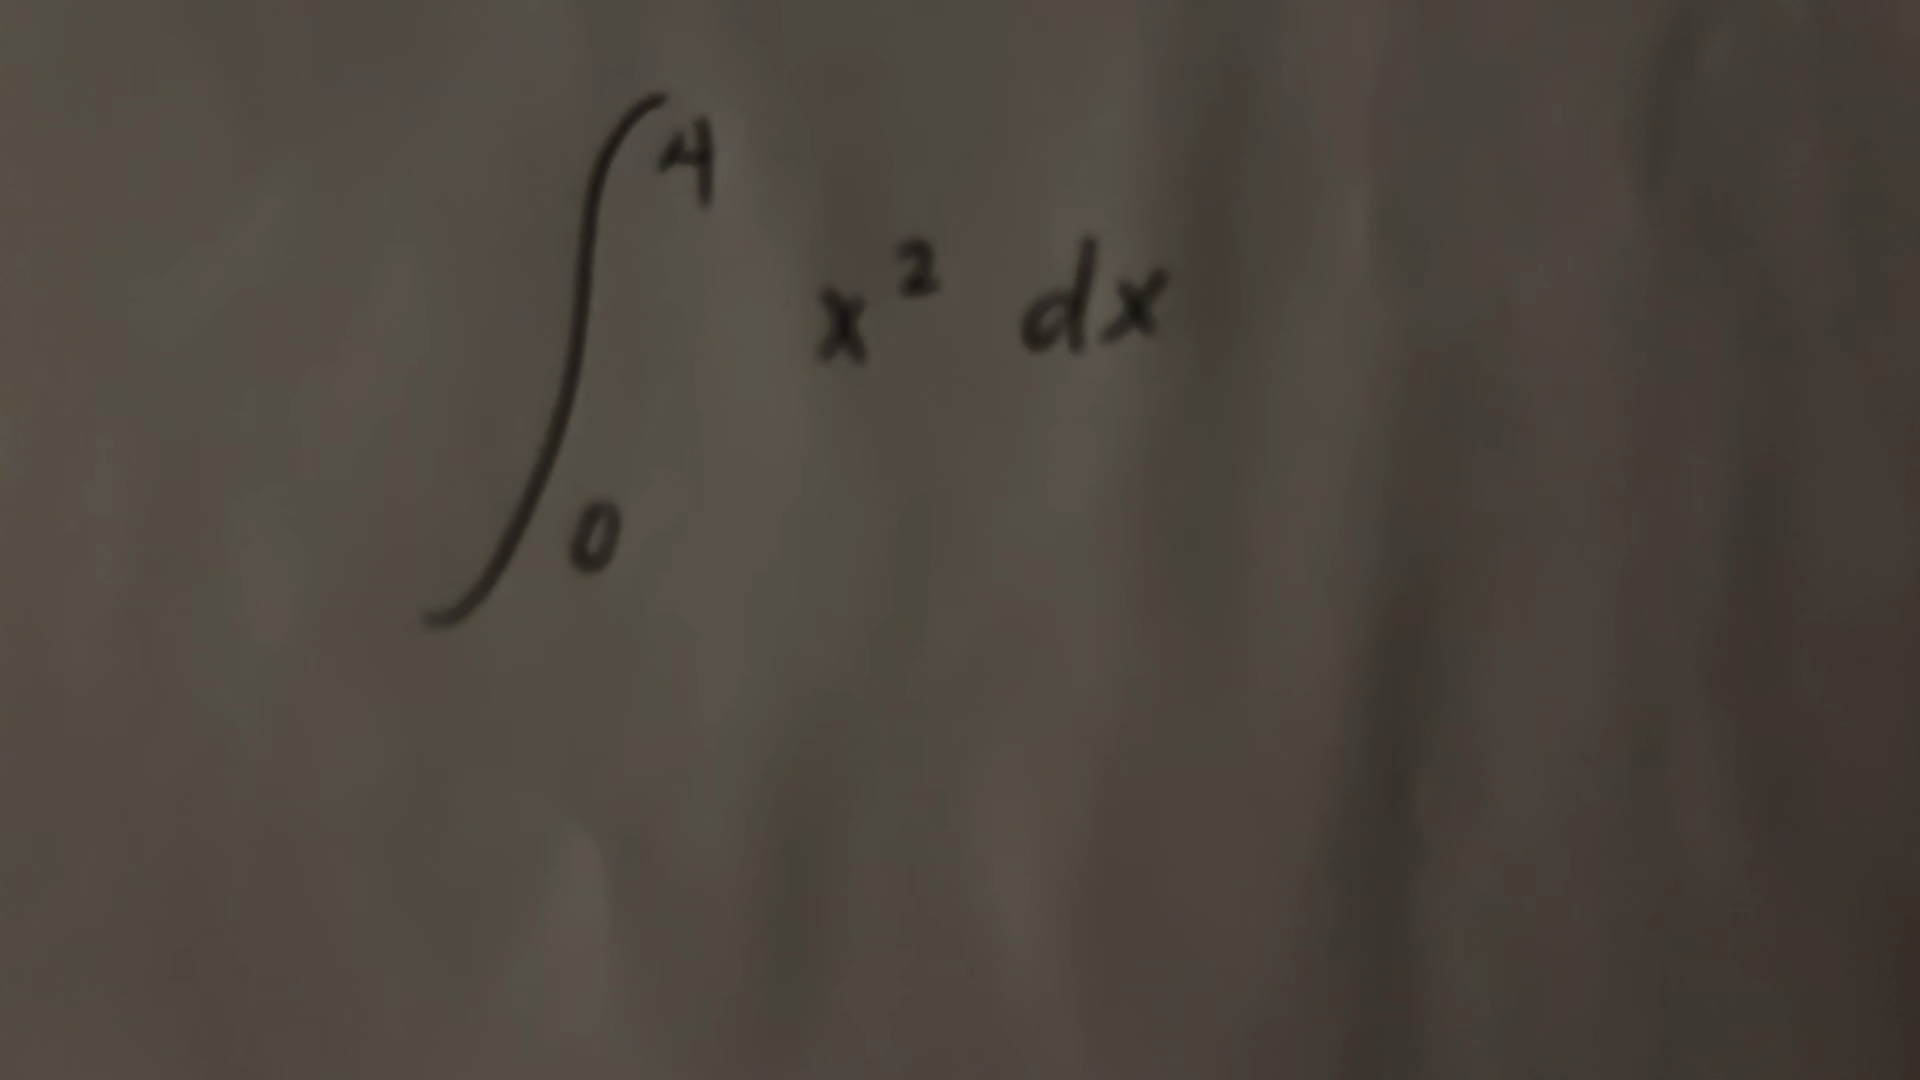 ∫₀⁴ x² dx